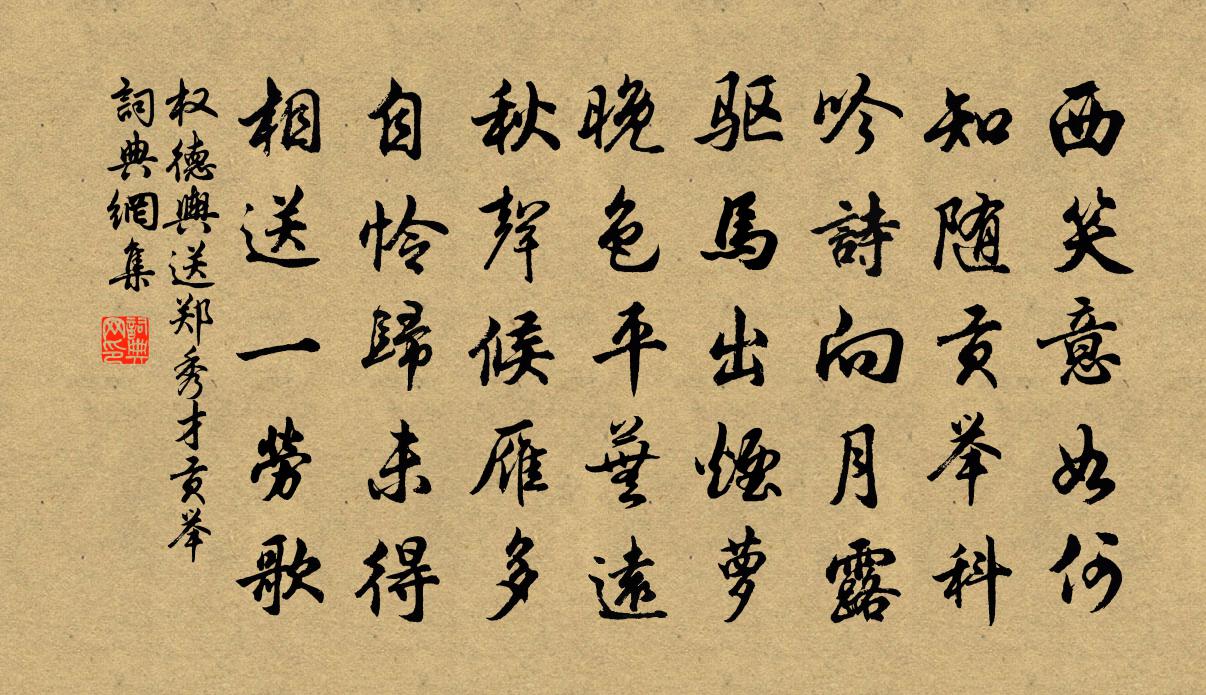 西笑意如何
知随贡举科
吟詩向月露
驱馬出煙萝
晚色平蕪遠
秋聲候雁多
自怜歸未得
相送一勞歌
权德輿送郑秀才贡举
詞典網集
詞典網印